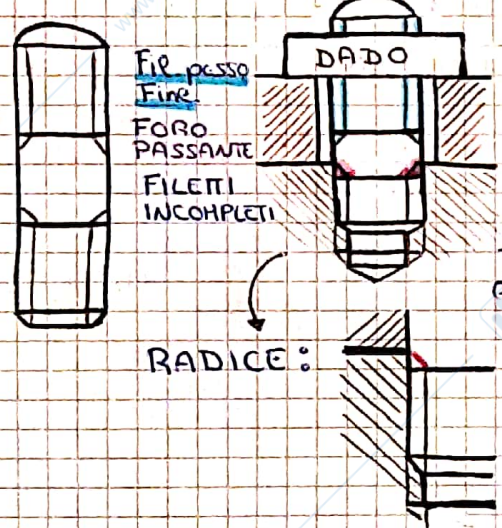 Fil passo
Fine
FORO
PASSANTE
FILETTI
INCOMPLETI
DADO
RADICE: